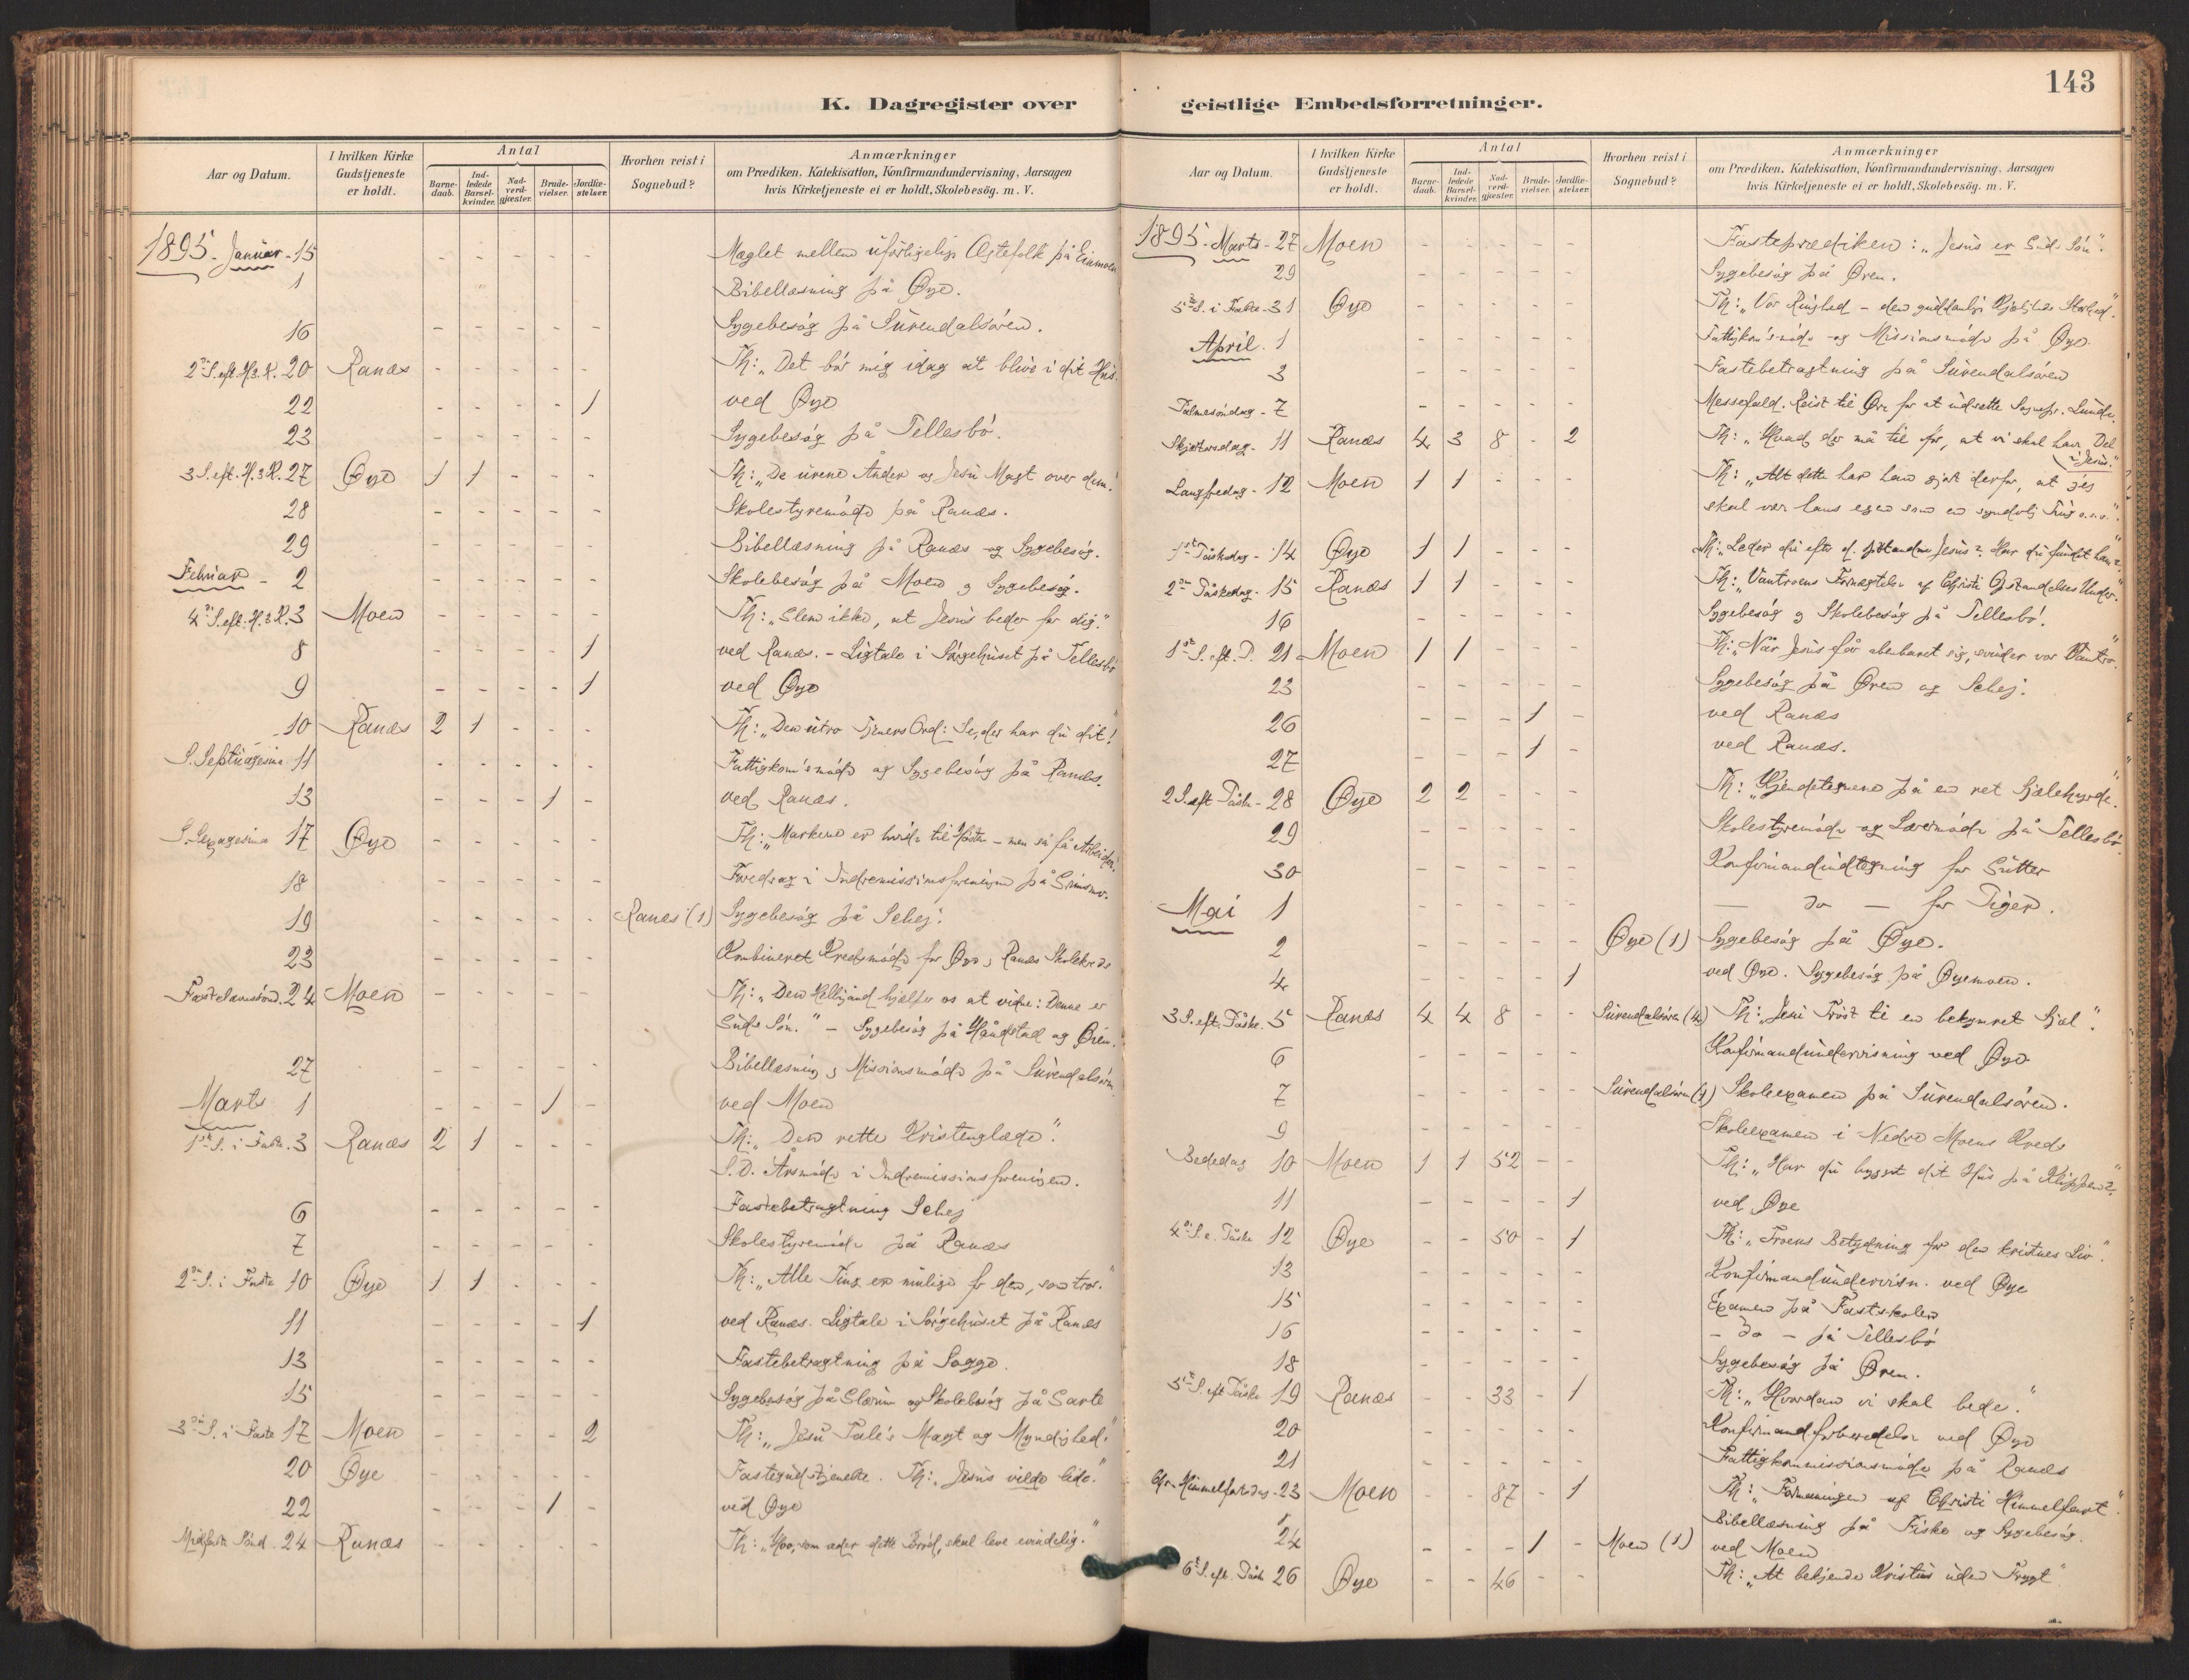 143
K. Dagregister over
geistlige Embedsforretninger.
Aar og Datum. I hvilken Kirke Gudstjeneste er holdt. Antal Barnedaab. Indledede Barselkvinder. Nadverdgjæster. Brudevielser. Jordfæstelser. Hvorhen reist i Sognebud? Anmærkninger om Prædiken, Katekisation, Konfirmandundervisning, Aarsagen hvis Kirketjeneste ei er holdt, Skolebesög. m. V.
1895. Januar - 15 - - - - - Mæglet mellem uforligelige Ægtefolk på
1 Bibellæsning på Øye.
16 - - - - - Sygebesøg på Surendalsøren.
2den S. eft. H.3.K. 20 Ranæs - - - - - Th: "Det bør mig idag at blive i dit Hus."
22 - - - - 1 ved Øye
23 - - - - - Sygebesøg på Tellesbø.
3 S. eft. H.3K. 27 Øye 1 1 - - - Th: "De urene Ånder og Jesu Magt over dem."
28 - - - - - Skolestyremøde på Ranæs.
29 - - - - - Bibellæsning på Ranæs og Sygebesøg.
Februar - 2 - - - - - Skolebesøg på Moen og Sygebesøg.
4de S. eft. H.3K. 3 Moen - - - - - Th: "Glem ikke, at Jesus beder for dig."
8 - - - - 1 ved Ranæs. - Ligtale i Sørgehuset på Tellesbø
9 - - - - 1 ved Øye
10 Ranæs 2 1 - - - Th: "Den utro Tjeners Ord: Se, der har du dit!"
S. Septuagesima 11 - - - - - Fattigkom's møde og Sygebesøg på Ranæs.
13 - - - 1 - ved Ranæs.
S. Sexagesima 17 Øye - - - - - Th: "Markene er hvide til Høsten - men så få Arbeidere."
18 - - - - - Foredrag i Indremissionsforeningen på
19 - - - - - Ranæs (1) Sygebesøg på
23 - - - - - Kombineret Kredsmøde for Øye og Ranæs Skolekreds
Fastelavnssønd. 24 Moen - - - - - Th: "Den Helligånd hjælper os at vidne: Denne er
Guds Søn." - Sygebesøg på Håndstad og Øren.
27 - - - - - Bibellæsning og Missionsmøde på Surendalsøren
Marts 1 - - - 1 - ved Moen
1ste S. i Faste. 3 Ranæs 2 1 - - - Th: "Den rette Kristenglæde".
S.D. Årsmøde i Indremissionsforeningen.
6 - - - - - Fastebetragtning
7 - - - - - Skolestyremøde på Ranæs
2den S. i Faste 10 Øye 1 1 - - - Th: "Alle Ting er mulige for den, som tror."
11 - - - - 1 ved Ranæs. Ligtale i Sørgehuset på Ranæs
13 - - - - - Fastebetragtning på Sogge.
15 - - - - - Sygebesøg på Glærum og Skolebesøg på Sarte
3die S. i Faste 17 Moen - - - - 2 Th: "Jesu Tale's Magt og Myndighed."
20 Øye - - - - - Fastegudstjeneste. Th: "Jesus vilde lide."
22 - - - 1 - ved Øye
Midfaste Sønd. 24 Ranæs - - - - - Th: "Hver, som æder dette Brød, skal leve evindelig."
Aar og Datum. I hvilken Kirke Gudstjeneste er holdt. Antal Barnedaab. Indledede Barselkvinder. Nadverdgjæster. Brudevielser. Jordfæstelser. Hvorhen reist i Sognebud? Anmærkninger om Prædiken, Katekisation, Konfirmandundervisning, Aarsagen hvis Kirketjeneste ei er holdt, Skolebesög. m. V.
1895 - Marts - 27 Moen - - - - - Fasteprædiken: "Jesus er Guds Søn".
29 - - - - - Sygebesøg på Øren.
5te S. i Faste - 31 Øye - - - - - Th: "Vor Ringhed - den guddommelige Kjærligheds Storhed".
April. 1 - - - - - Fattigkom's møde og Missionsmøde på Øye.
3 - - - - - Fastebetragtning på Surendalsøren
Palmesøndag - 7 - - - - - Messefald. Reist til Øre for at
Skjærtorsdag - 11 Ranæs 4 3 8 - 2 Th: "Hvad der må til for, at vi skal have Del
i Jesus."
Langfredag - 12 Moen 1 1 - - - Th: "Alt dette har han gjort derfor, at jeg
skal være hans egen
1ste Påskedag - 14 Øye 1 1 - - - Th: "Leder du efter d. opstandne Jesus? Har du fundet ham?"
2den Påskedag. 15 Ranæs 1 1 - - - Th: "Vantroens Fornægtelse af Christi Opstandelses Under."
16 - - - - - Sygebesøg og Skolebesøg på Tellesbø.
1ste S. eft. P. 21 Moen 1 1 - - - Th: "Når Jesus får åbenbaret sig, svinder vor Vantro."
23 - - - - - Sygebesøg på Øren og
26 - - - 1 - ved Ranæs
27 - - - 1 ved Ranæs.
2 S. eft Påske - 28 Øye 2 2 - - - Th: "Kjendetegnene på en ret Sjælehyrde."
29 - - - - - Skolestyremøde og Lærermøde på Tellesbø.
30 - - - - - Konfirmandindtegning for Gutter
Mai 1 - - - - - — do — for Piger.
2 - - - - - Øye (1) Sygebesøg på Øye.
4 - - - - 1 ved Øye. Sygebesøg på Øyemoen.
3 S. eft. Påske. 5 Ranæs 4 4 8 - - Surendalsøren (4) Th: "Jesu Trøst til en bekymret Sjæl".
6 - - - - - Konfirmandundervisning ved Øye
7 - - - - - Surendalsøren (1) Skoleexamen på Surendalsøren.
9 - - - - - Skoleexamen i Nedre Moens Kreds
Bededag 10 Moen 1 1 52 - - Th: "Har du bygget dit Hus på Klippen?"
11 - - - - 1 ved Øye
4de S. e. Påske 12 Øye - - 50 - 1 Th: "Troens Betydning for den kristnes Liv".
13 - - - - - Konfirmandundervisn. ved Øye
15 - - - - - Examen på Fastskolen
16 - - - - - - do - på Tellesbø
18 - - - - - Sygebesøg på Øren.
5te S. eft Påske 19 Ranæs - - 33 - 1 Th: "Hvordan vi skal bede."
20 - - - - - Konfirmandforberedelse ved Øye
21 - - - - - Fattigkommissionsmøde på Ranæs
Chr. Himmelfartsdag - 23 Moen - - 87 - 1 Th: af Christi Himmelfart".
Bibellæsning på Fiske og Sygebesøg.
24 - - - 1 - Moen (1) ved Moen
6te S. eft. Påske 26 Øye - - 46 - - Th: "At bekjende Kristus uden Frygt"